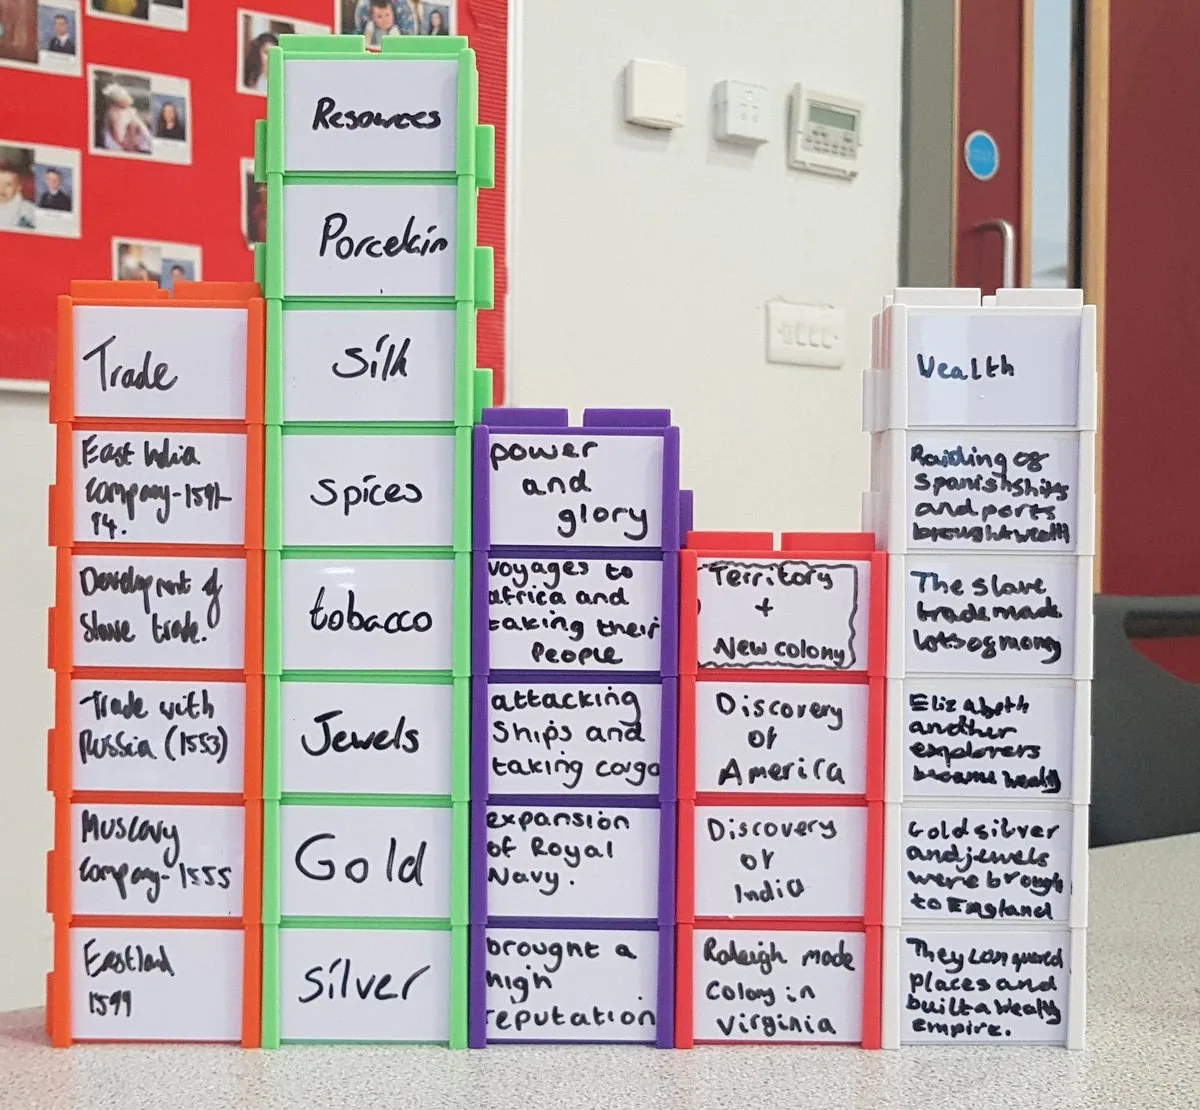 Trade
East India
Company-1591-
94.
Development of
Slave trade.
Trade with
Russia (1553)
Muscovy
Company-1555
Eastland
1599
Resources
Porcelain
Silk
Spices
tobacco
Jewels
Gold
silver
power
and
glory
voyages to
africa and
taking their
People
attacking
Ships and
taking cargo
expansion
of Royal
Navy.
brought a
high
reputation
Territory
+
New colony
Discovery
of
America
Discovery
of
India
Raleigh made
Colony in
Virginia
Wealth
Raiding of
Spanish ships
and ports
brought wealth
The slave
trade made
lots of money
Elizabeth
and her
explorers
became wealthy
Gold silver
and jewels
were brough
to England
They conquered
places and
built a wealthy
empire.